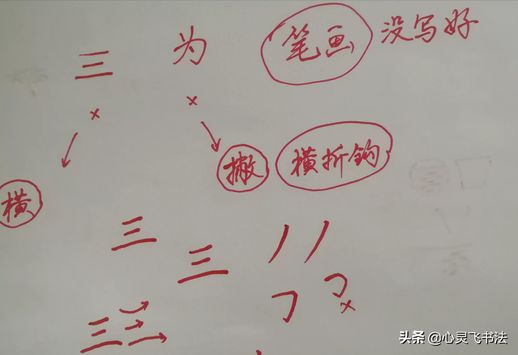 三 为 笔画 没写好
× ×
横 撇 横折钩
三 三
三
头条 @心灵飞书法